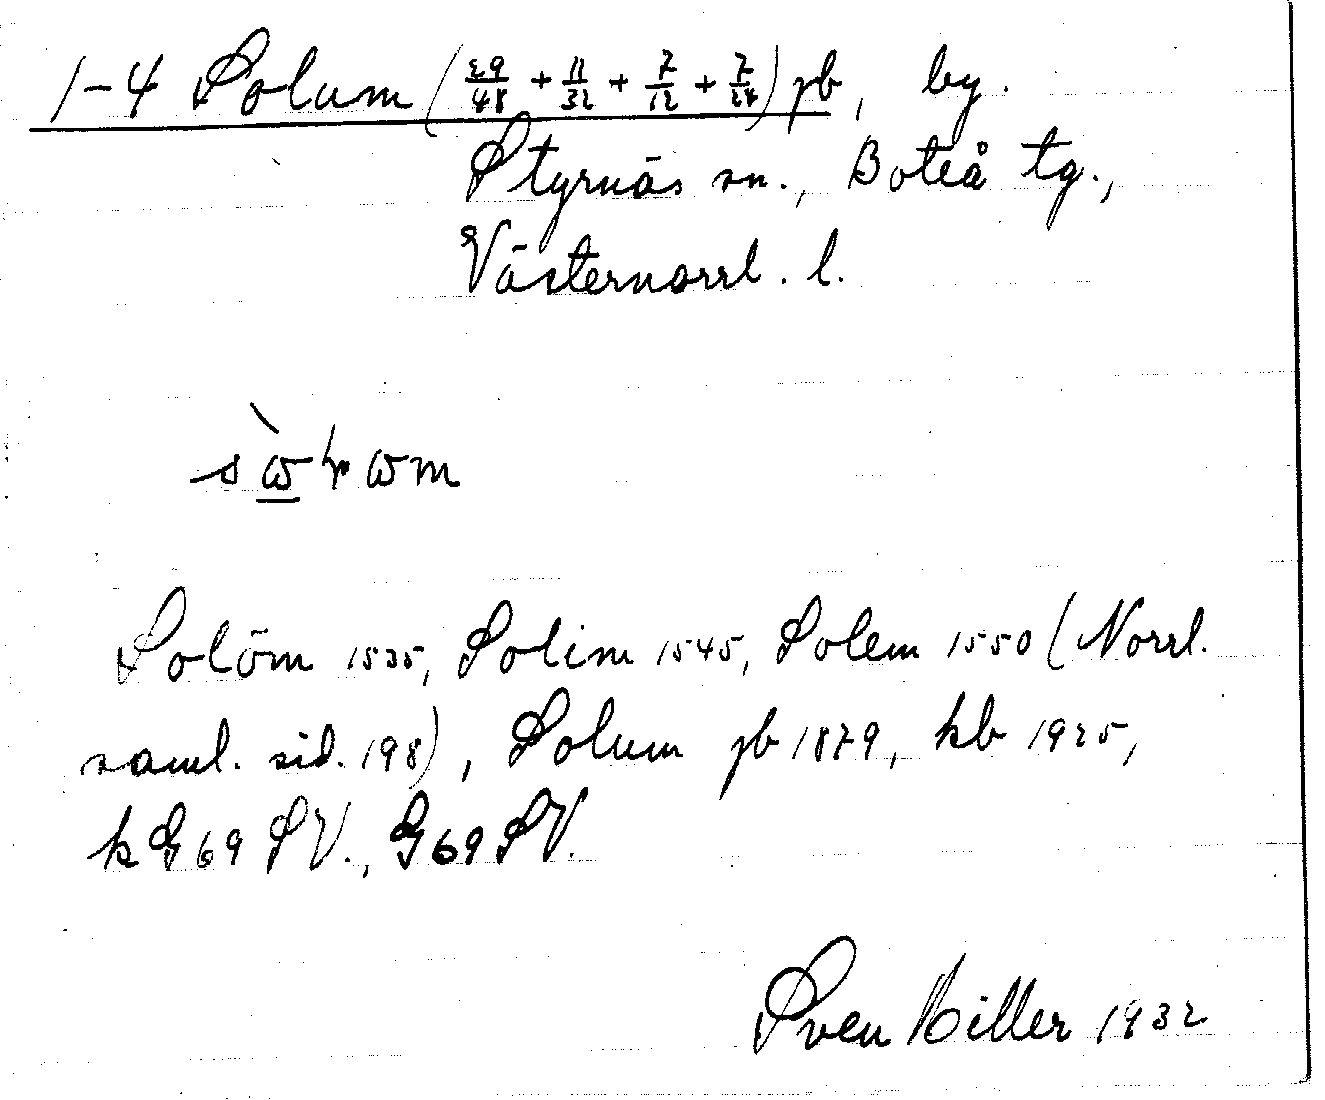 1-4 Solum (29/48 + 11/32 + 7/12 + 7/24) jb, by.
Styrnäs sn., Boteå tg.,
Västernorrl. l.
Solöm 1535, Solim 1545, Solem 1550 (Norrl.
saml. sid. 198), Solum jb 1879, kb 1925,
k G 69 SV., G 69 SV.
Sven Hiller 1932